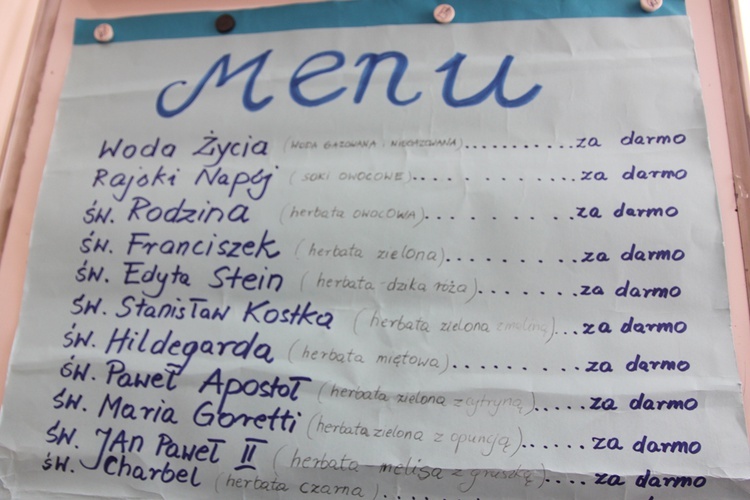 Menu
Woda Życia (WODA GAZOWANA i NIEGAZOWANA)..........za darmo
Rajski Napój (SOKI OWOCOWE)..........za darmo
św. Rodzina (herbata OWOCOWA)..........za darmo
św. Franciszek (herbata zielona)..........za darmo
św. Edyta Stein (herbata-dzika róża)........za darmo
św. Stanisław Kostka (herbata zielona)...za darmo
św. Hildegarda (herbata miętowa)..........za darmo
św. Paweł Apostoł (herbata zielona z cytryną).....za darmo
św. Maria Gorretti (herbata zielona z opuncją)......za darmo
św. JAn Paweł II (herbata-melisa z gruszką).....za darmo
św. Charbel (herbata czarna....